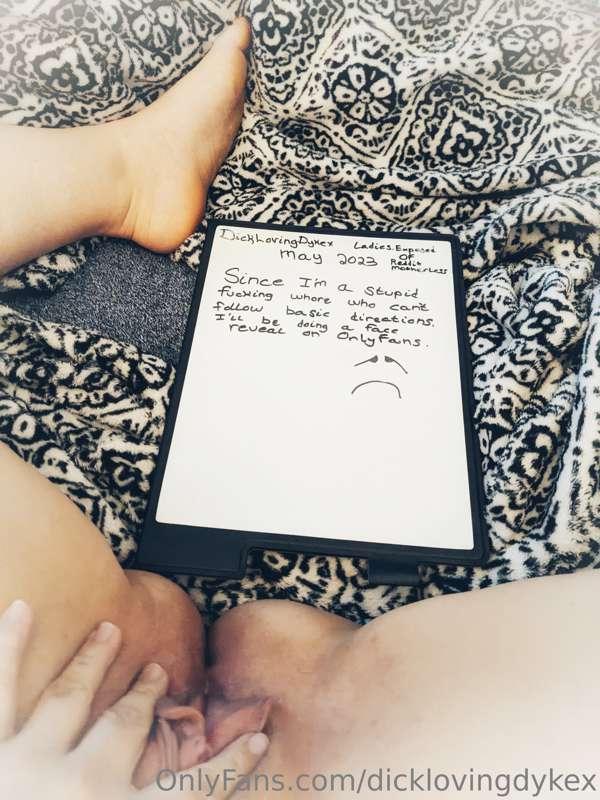 DickLovingDykex Ladies.Exposed
May 2023 OF
Reddit
Motherless
Since I'm a stupid
fucking whore who can't
follow basic directions.
I'll be doing a face
reveal on OnlyFans.
OnlyFans.com/dicklovingdykex